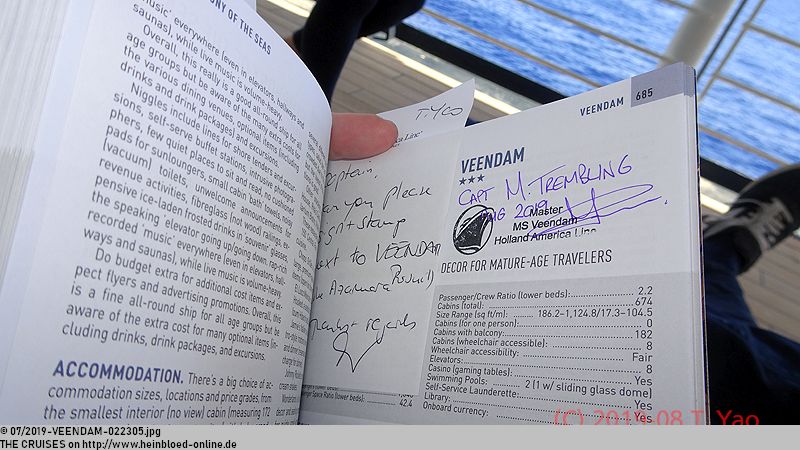 NY OF THE SEAS
music' everywhere (even in elevators, hallways and
saunas), while live music is volume-heavy.
Overall, this really is a good all-round ship for all
age groups but be aware of the many extra costs for
the various dining venues, optional items (including
drinks and drink packages) and excursions.
Niggles include lines for shore tenders and excur-
sions, self-serve buffet stations, intrusive photogra-
phers, few quiet places to sit and read, no cushioned
pads for sunloungers, small cabin 'bath' towels, noisy
(vacuum) toilets, unwelcome announcements for
revenue activities, fibreglass (not wood) railings, ex-
pensive ice-laden frosted drinks in souvenir glasses,
the speaking 'elevator going up/going down, rap-rich
recorded 'music' everywhere (even in elevators, hall-
ways and saunas), while live music is volume-heavy.
Do budget extra for additional cost items and ex-
pect flyers and advertising promotions. Overall, this
is a fine all-round ship for all age groups but be
aware of the extra cost for many optional items (in-
cluding drinks, drink packages, and excursions.
ACCOMMODATION. There's a big choice of ac-
commodation sizes, locations and price grades, from
the smallest interior (no view) cabin (measuring 172
T. YCO
ca Line'
you please
stamp
to VEENDAM
Azamara Pursuit)
regards
42.4
VEENDAM 685
VEENDAM
★★★
CAPT M. TREMBLING
AUG 2019
Master
MS Veendam
Holland America Line
DECOR FOR MATURE-AGE TRAVELERS
Passenger/Crew Ratio (lower beds): 2.2
Cabins (total): 674
Size Range (sq ft/m): 186.2–1,124.8/17.3–104.5
Cabins (for one person): 0
Cabins with balcony: 182
Cabins (wheelchair accessible): 8
Wheelchair accessibility: Fair
Elevators: 8
Casino (gaming tables): Yes
Swimming Pools: 2 (1 w/ sliding glass dome)
Self-Service Launderette: Yes
Library: Yes
Onboard currency:
(C) 2019-08 T. Yao
© 07/2019-VEENDAM-022305.jpg
THE CRUISES on http://www.heinbloed-online.de